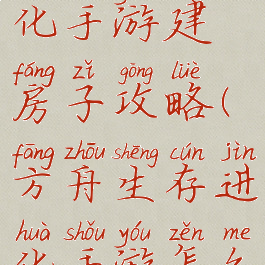 化手游建
fáng zǐ gōng lüè
房子攻略(
fāng zhōu shēng cún jìn
方舟生存进
huà shǒu yóu zěn me
化手游怎么